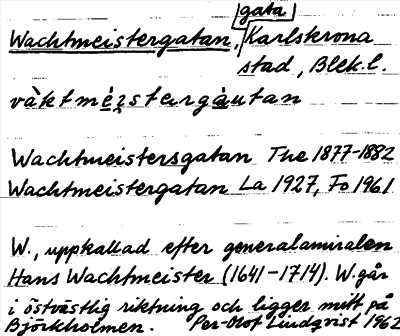 gata
Wachtmeistergatan, Karlskrona
stad, Blek.l.
Wachtmeistersgatan The 1877-1882
Wachtmeistergatan La 1927, Fo 1961
W., uppkallad efter generalamiralen
Hans Wachtmeister (1641-1714). W. går
i östvästlig riktning och ligger mitt på
Björkholmen. Per-Olof Lindqvist 1962